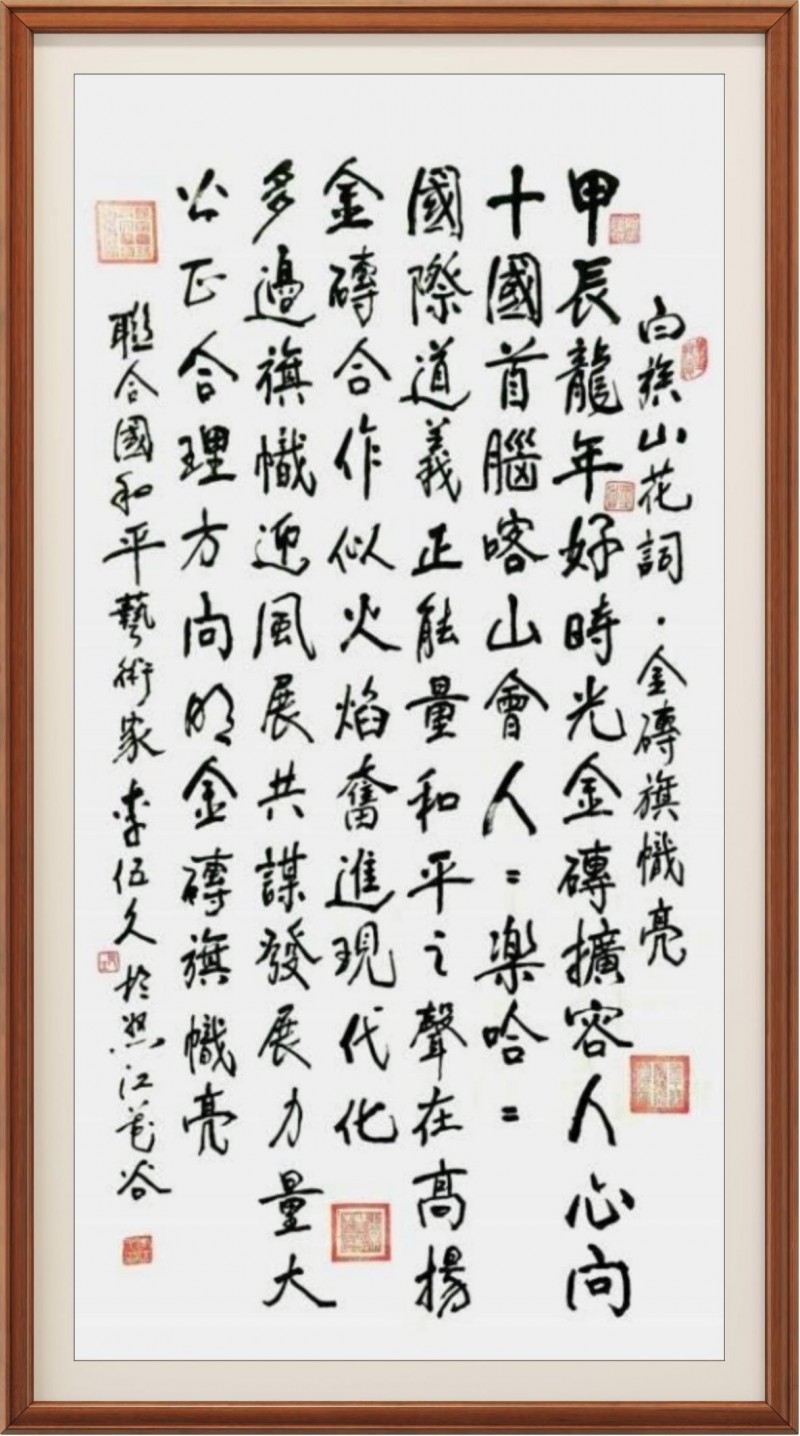 白族山花詞·金磚旗幟亮
甲辰龍年好時光金磚擴容人心向
十國首腦喀山會人=樂哈=
國際道義正能量和平之聲在高揚
金磚合作似火焰奮進現代化
多邊旗幟迎風展共謀發展力量大
公正合理方向明金磚旗幟亮
聯合國和平藝術家李伍久於怒江花谷